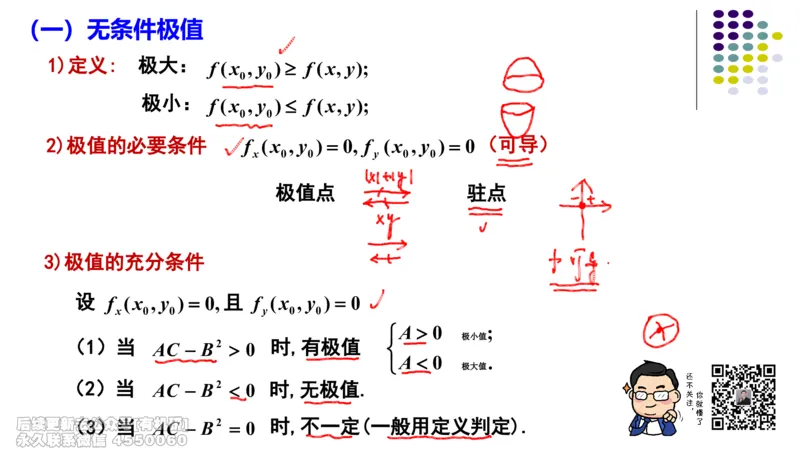 (一) 无条件极值
1)定义: 极大: f(x₀,y₀) ≥ f(x,y);
极小: f(x₀,y₀) ≤ f(x,y);
2)极值的必要条件 fₓ(x₀,y₀)=0, f_y(x₀,y₀)=0 (可导)
|x|+|y|
极值点 驻点
xy
不可导
3)极值的充分条件
设 fₓ(x₀,y₀)=0,且 f_y(x₀,y₀)=0
(1) 当 AC−B²>0 时,有极值 { A>0 极小值;
A<0 极大值.
(2) 当 AC−B²<0 时,无极值.
(3) 当 AC−B²=0 时,不一定(一般用定义判定).
还不关注,
你就慢了
永久联系微信 4550060